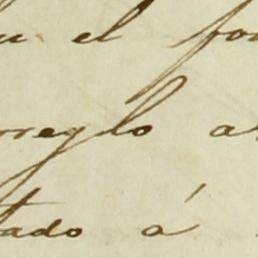 el
rreglo a
tado á